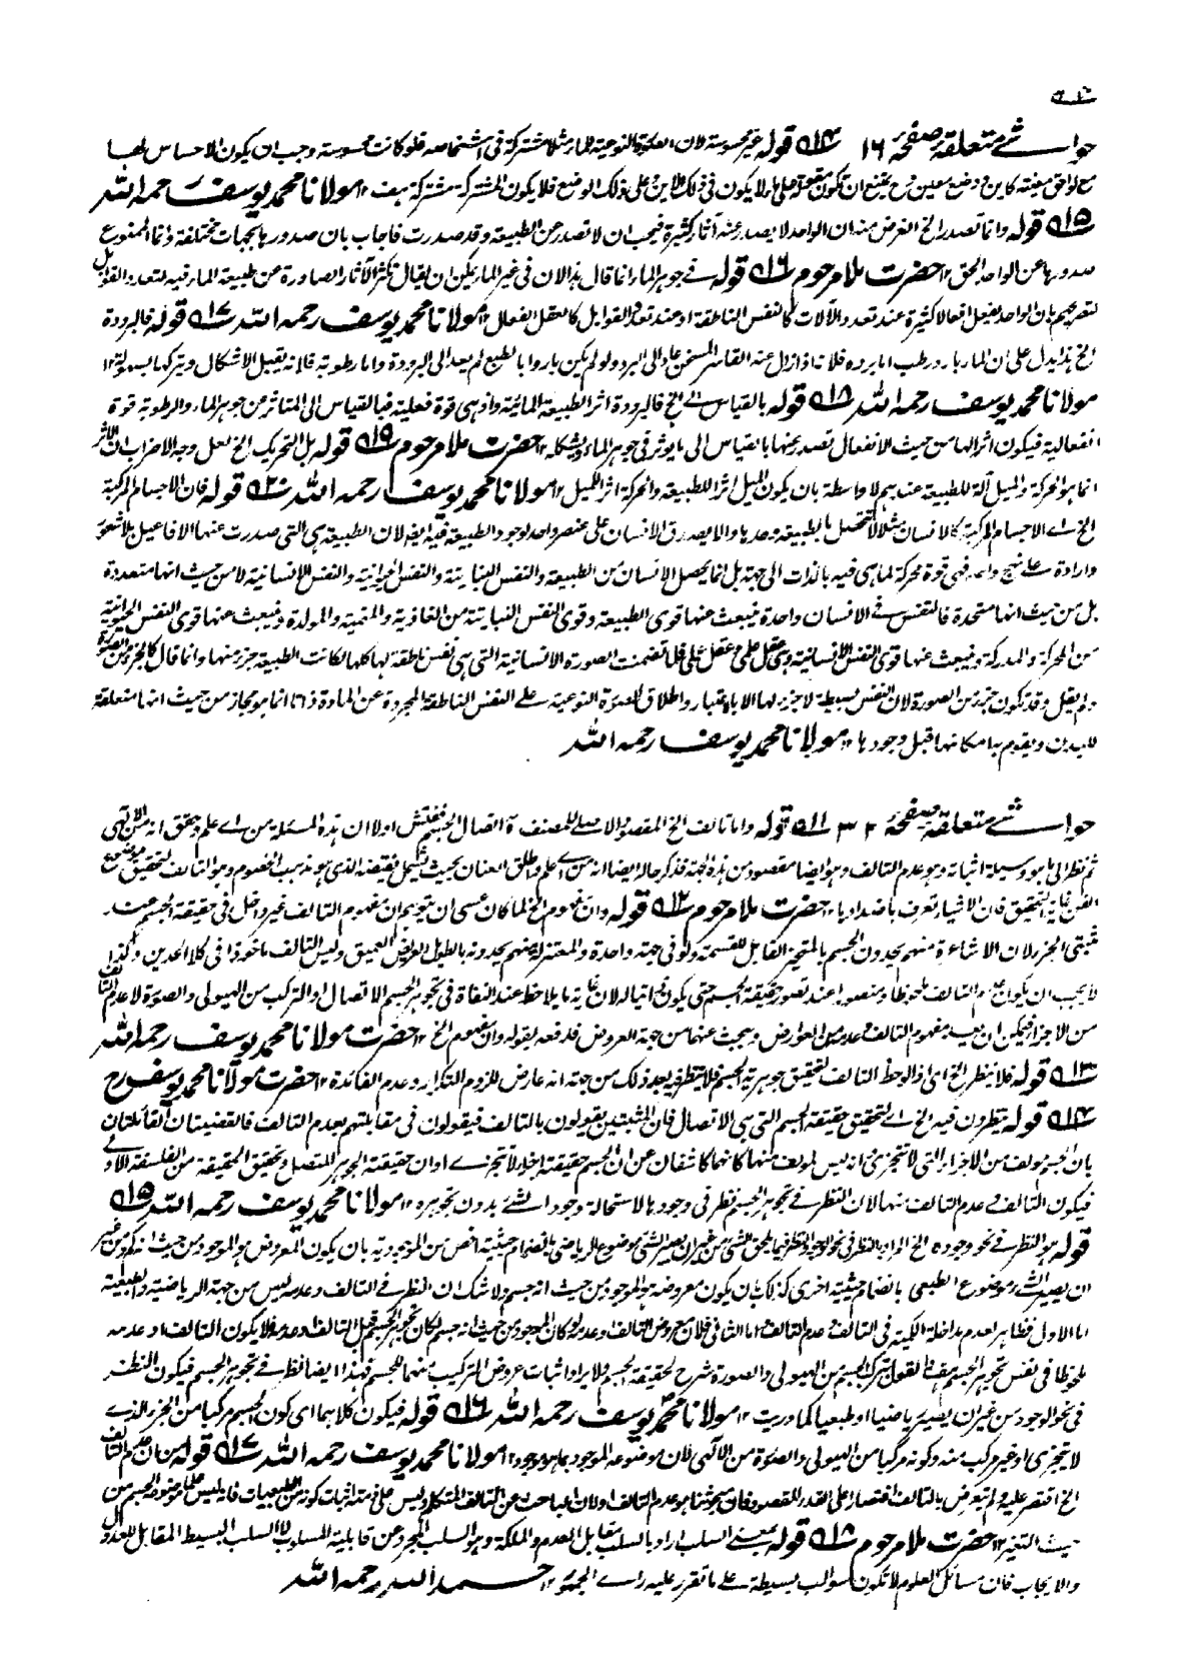 حواشے متعلقہ صفحہ ۱۶ ۱۴ قولہ غیر محسوسة لان الصورة النوعية للماء مثلا مشتركة فى اشخاصه فلو كانت محسوسة وجب ان يكون الاحساس لها
مع لواحق معينة كاين و وضع معين و ح يمتنع ان تكون مقولة على ما لا يكون فى ذلك الاين و على ذلك الوضع فلا يكون المشتركة مشتركة هف ۱۲ مولانا محمد يوسف رحمه الله
۱۵ قوله وانما تصدر الخ الغرض منه ان الواحد لا يصدر عنه آثار كثيرة فيجب ان لا تصدر عن الطبيعة و قد صدرت فاجاب بان صدورها بجهات مختلفة وانما الممنوع
صدورها عن الواحد الحق ۱۲ حضرت ملا مرحوم ۱۶ قوله فے جوهر الماء انما قال هذا لان فى غير الماء يمكن ان يقال تكثر الآثار الصادرة عن طبيعة الماء فيه لتعدد القوابل
لتصريحهم بان الواحد يفعل افعالا كثيرة عند تعدد الآلات كالنفس الناطقة او عند تعدد القوابل كالعقل الفعال ۱۲ مولانا محمد يوسف رحمه الله ۱۷ قوله فالبرودة
الخ هذا يدل على ان الماء بارد رطب اما برده فلانه اذا زال عنه القاسر المسخن عاد الى البرد ولو لم يكن باردا بالطبع لم يعد الى البرودة واما رطوبته فلانه يقبل الاشكال ويتركها بسهولة ۱۲
مولانا محمد يوسف رحمه الله ۱۸ قوله بالقياس الے الخ فالبرودة اثر الطبيعة المائية واذ هى قوة فعلية فبالقياس الى المتاثر من جوهر الماء والرطوبة قوة
انفعالية فيكون اثرا لها من حيث الانفعال تصدر عنها بالقياس الى ما يوثر فى جوهر الماء ويشكله ۱۲ حضرت ملا مرحوم ۱۹ قوله بل التحريك الخ لعل وجه الاضراب ان الاثر
انما هو الحركة والميل آلة للطبيعة عندهم لا واسطة بان يكون الميل اثرا للطبيعة والحركة اثرا للميل ۱۲ مولانا محمد يوسف رحمه الله ۲۰ قوله فان الاجسام المركبة
الخ اے الاجسام المركبة كالانسان مثلا لا تحصل بالطبيعة وحدها والا يصدق الانسان على عنصر واحد لوجود الطبيعة فيه ايضا لان الطبيعة هى التى صدرت عنها الافاعيل بلا شعور
وارادة علے نهج واحد فهى قوة محركة لما هى فيه بالذات الى جهة بل انما يحصل الانسان من الطبيعة والنفس النباتية والنفس الحيوانية والنفس الانسانية لا من حيث انها متعددة
بل من حيث انها متحدة فالنفس فے الانسان واحدة ينبعث عنها قوى الطبيعة وقوى النفس النباتية من الغاذية والمنمية والمولدة وينبعث عنها قوى النفس الحيوانية
من المحركة والمدركة وينبعث عنها قوى النفس الانسانية وهى عقل علمى وعقل عملى فلما تضمنت الصورة الانسانية التى هى نفس ناطقة لها كلها لكانت الطبيعة جزء منها وانما قال كالجزء من الصورة
ولم يقل وقد تكون جزء من الصورة لان النفس بسيطة لا جزء لها الا بالاعتبار واطلاق الصورة النوعية علے النفس الناطقة المجردة عن المادة انما هو مجاز من حيث انها متعلقة
للبدن ويقوم به امكانها قبل وجودها ۱۲ مولانا محمد يوسف رحمه الله
حواشے متعلقہ صفحہ ۳۲ ۱۱ قوله واما تالف الخ المقصود الاصلے للمصنف اتصال الجسم ففتش اولا ان هذه المسئلة من اے علم وحقق انه من الالهى
ثم نظر الى ما هو وسيلة اثباته وهو عدم التالف وهو ايضا مقصود من هذه الجهة فذكر حاله ايضا انه من اے علم واطلق العنان بحيث يشمل نقيضه الذى هو مذهب الخصوم وهو التالف لتحقيق موضوع
الفن غاية التحقيق فان الاشياء تعرف باضدادها ۱۲ حضرت ملا مرحوم ۱۲ قوله وان مفهوم الخ لما كان عسى ان يتوهم ان مفهوم التالف غير داخل فى حقيقة الجسم عند
مثبتى الجزء لان الاشاعرة منهم يحدون الجسم بالمتحيز القابل للقسمة ولو فى جهة واحدة والمعتزلة منهم يحدونه بالطويل العريض العميق وليس التالف ماخوذا فى كلا الحدين وكذا
لا يجب ان يكون عدم التالف ملحوظا ومنصوبا عند تصور حقيقة الجسم حتى يكون ذاتيا له لان غاية ما يلاحظ عند النفاة فى تجوهر الجسم الاتصال او التركب من الهيولى والصورة لا عدم التالف
من الاجزاء فيمكن ان يذهب مفهوم التالف وعدمه من العوارض ويبحث عنهما من جهة العروض فدفعه بقوله وان مفهوم الخ ۱۲ حضرت مولانا محمد يوسف رحمه الله
۱۳ قوله فلا ينظر الخ اى اذ الوحظ التالف لتحقيق جوهرية الجسم فلا ينظر فيه بعد ذلك من جهة انه عارض للزوم التكرار وعدم الفائدة ۱۲ حضرت مولانا محمد يوسف رح
۱۴ قوله ينظرون فيه الخ اے لتحقيق حقيقة الجسم التى هى الاتصال فان المثبتين يقولون بالتالف فيقولون فى مقابلتهم بعدم التالف فالقضيتان القائلتان
بان الجسم مولف من الاجزاء التى لا تتجزى او انه ليس بمولف منها كانهما كاشفان عن ان الجسم حقيقة اجزاء لا تتجزے او ان حقيقة الجوهر المتصل وتحقيق الحقيقة من الفلسفة الاولے
فيكون التالف وعدم التالف منها لان النظر فے تجوهر الجسم نظر فى وجوده بالاستحالة وجود الشئے بدون تجوهره ۱۲ مولانا محمد يوسف رحمه الله ۱۵
قوله هو النظر فے نحو وجوده الخ المراد بالنظر فى نحو الوجود النظر فيما يلحق الشئ من غير ان يصير الشئ موضوع الرياضى بانضمام حيثية اخص من الموجودية بان يكون المعروض هو الموجود من حيث انه كم من غير
ان يصير الشئ موضوع الطبعى بانضمام حيثية اخرى كذلك بان يكون معروضه هو الموجود من حيث انه جسم ولا شك ان النظر فے التالف وعدمه ليس من جهة الرياضية والطبعية
اما الاول فظاهر لعدم مداخلة الكمية فى التالف وعدم التالف اما الثانى فلان معروض التالف وعدمه لو كان الموجود من حيث انه جسم لكان تجوهر الجسم قبل التالف وعدمه فلا يكون التالف او عدمه
ملحوظا فى نفس تجوهر الجسم هف فالقول بتركب الجسم من الهيولى والصورة شرح لحقيقة الجسم ولا يراد اثبات عروض التركيب منهما للجسم فهذا ايضا نظر فے تجوهر الجسم فيكون النظر
فى نحو الوجود من غير ان يصير رياضيا او طبعيا كما دريت ۱۲ مولانا محمد يوسف رحمه الله ۱۶ قوله فيكون كلاهما اى كون الجسم مركبا من الجزء الذے
لا يتجزى او غير مركب منه وكونه مركبا من الهيولى والصورة من الآلهى لان موضوعه الموجود بما هو موجود ۱۲ مولانا محمد يوسف رحمه الله ۱۷ قوله من ان عدم التالف
الخ اقتصر عليه ولم يتعرض بالتالف اقتصارا على القدر المقصود فان مبحوثنا هو عدم التالف ولان الباحث عن التالف المتكلم وليس على ذمته اثبات كونه من الطبعيات فانه ليس عالما موضوعه الجسم من
حيث التغير ۱۲ حضرت ملا مرحوم ۱۸ قوله بمعنے السلب اراد بالسلب مقابل العدم والملكة وهو السلب المجرد عن قابلية المسلوب لا السلب البسيط المقابل للعدول
والايجاب فان مسائل العلوم لا تكون سوالب بسيطة علے ما تقرر عليه راے الجمهور ۱۲ حمد الله رحمه الله